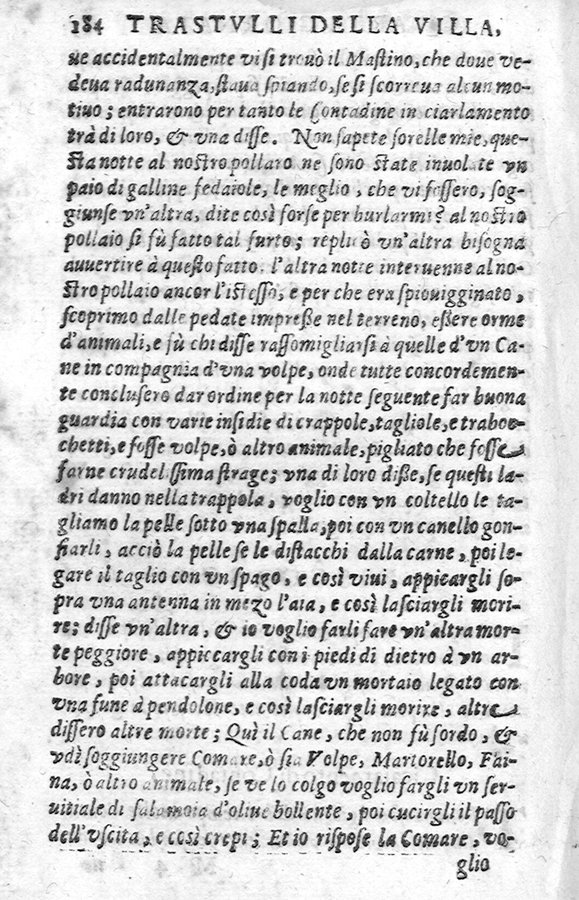 184 TRASTVLLI DELLA VILLA,
ue accidentalmente vi si trouò il Mastino, che doue ve-
deua radunanza, staua spiando, se si scorreua alcun mo-
tiuo; entrarono per tanto le Contadine in ciarlamento
trà di loro, & vna disse. Non sapete sorelle mie, que-
sta notte al nostro pollaro ne sono state inuolate vn
paio di galline fedaiole, le meglio, che vi fossero, sog-
giunse vn'altra, dite così forse per burlarmi? al nostro
pollaio si fù fatto tal furto; replicò vn'altra bisogna
auuertire à questo fatto. l'altra notte interuenne al no-
stro pollaio ancor l'istesso, e per che era spiouigginato,
scoprimo dalle pedate impreße nel terreno, eßere orme
d'animali, e fù chi disse rassomigliarsi à quelle d'vn Ca-
ne in compagnia d'vna volpe, onde tutte concordemen-
te conclusero dar ordine per la notte seguente far buona
guardia con varie insidie di crappole, tagliole, e traboc-
chetti, e fosse volpe, ò altro animale, pigliato che fosse
farne crudelissima strage; vna di loro diße, se questi la-
dri danno nella trappola, voglio con vn coltello le ta-
gliamo la pelle sotto vna spalla, poi con vn canello gon-
fiarli, acciò la pelle se le distacchi dalla carne, poi le-
gare il taglio con vn spago, e così viui, appicargli so-
pra vna antenna in mezo l'aia, e così lasciargli mori-
re; disse vn'altra, & io voglio farli fare vn'altra mor-
te peggiore, appiccargli con i piedi di dietro à vn ar-
bore, poi attacargli alla coda vn mortaio legato con
vna fune à pendolone, e così lasciargli morire, altre
dissero altre morte; Quì il Cane, che non fù sordo, &
vdì soggiungere Comare, ò sia Volpe, Martorello, Fai-
na, ò altro animale, se ve lo colgo voglio fargli vn ser-
uitiale di salamoia d'oliue bollente, poi cucirgli il passo
dell'vscita, e così crepi; Et io rispose la Comare, vo-
glio